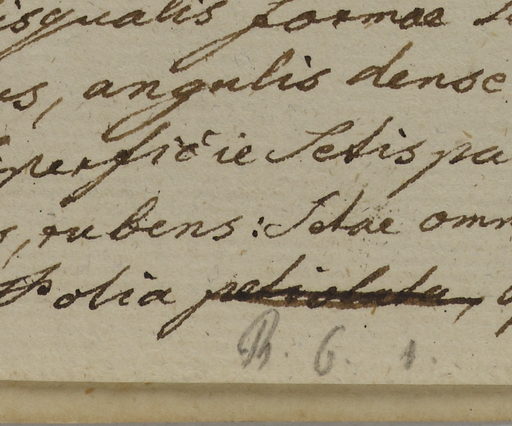 isqualis formae
us, angulis dense
perficie Setis pa
, rubens: Setae omn
Folia petiolata,
R. 6. 1.